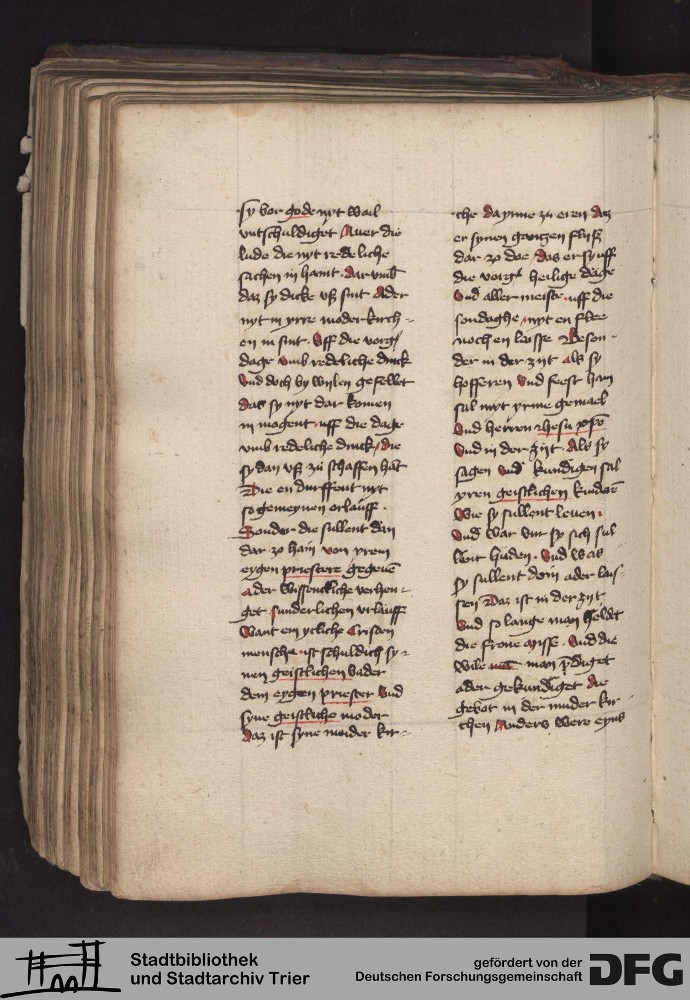 sy vor gode nyt wail
vntschuldiget Auer die
lude die nyt redeliche
sachen in haint · dar vmb
daz sy dicke vß sint Ader
nyt in yrre moder kirch-
en in sint · Vff die vorg/
dage vmb redeliche druck
vnd doch by wylen gefellet
daz sy nyt dar komen
in mogent · uff die dage
vmb redeliche druck / die
sy dan vß zu schaffen hāt
Die en durffent nyt
so gemeynen orlauff ·
Sonder die sullent dan
dar zo hain von yrem
eygen priestere gegeuē
Ader wissencliche verhen-
get sunderlichen vrlauff
Want ein ycliche Cristen
mensche ist schuldich sy-
nen geistlichen vader
dem eygen priester vnd
syne geistliche moder
daz ist syne moider kir-
che da ynne zu eren daz
er synen gantzen flyß
dar zo doe / das er sy uff
die vorgt heilige dage
vnd aller meiste · uff die
sondaghe · nyt en flee
noch en laisse Beson-
der in der zyt als sy
hofferen vnd feest hain
sal myt yrme gemael
vnd herren Jhesu xpō
vnd in der zyt · Als sy
sagen vnd kundigen sal
yren geistlichen kinderē
Wie sy sullent leuen ·
vnd war vur sy sich sul
lent huden · vnd was
sy sullent doin ader lais-
sen Daz ist in der zyt
vnd so lange man heldet
die frone mysse · vnd die
wile man p̄diget
ader gekundiget die
gebot in der muder kir-
chen Anders were eyns
Stadtbibliothek
und Stadtarchiv Trier
gefördert von der
Deutschen Forschungsgemeinschaft
DFG